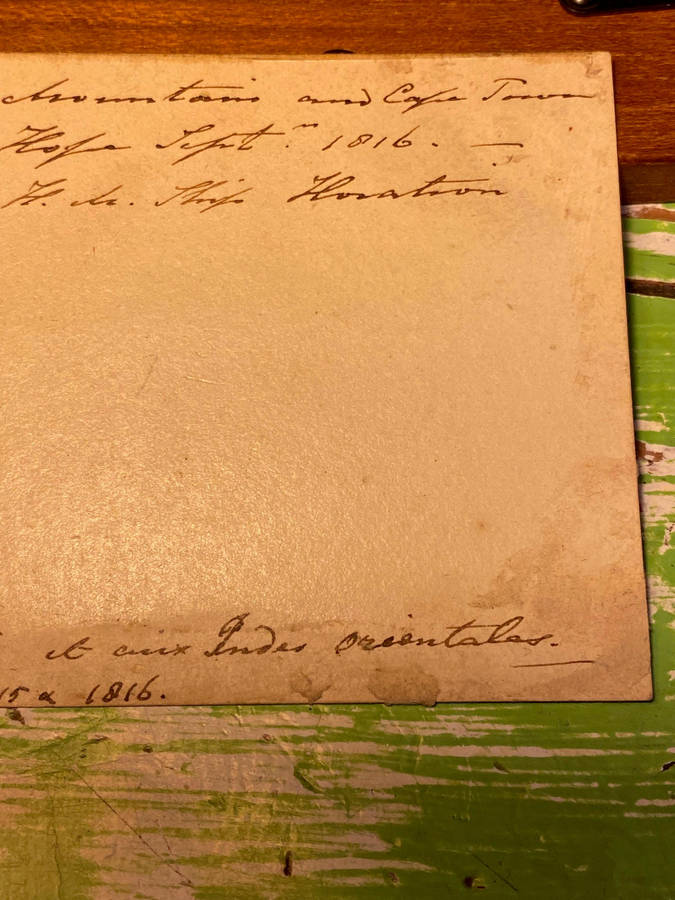 Mountain and Cape Town
Hope Septr. 1816. —
H. M. Ship Horation
et aux Indes Orientales.
15 a 1816.